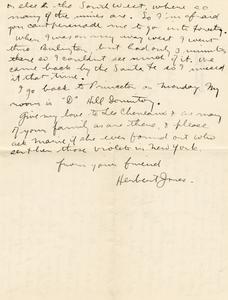 or else the Southwest, where so
many of the mines are. So I'm afraid
you can't persuade me to go into forestry.
When I was on my way west I went
thru Burlington, but had only 3 minutes
there so I couldn't see much of it. We
came back by the Santa Fe so I missed
it that time.
I go back to Princeton on Monday. My
room is "D" Hill Dormitory.
Give my love to Les Cheneaux & as many
of your family as are there, & please
ask mame if she ever found out who
sent her those violets in New York.
from your friend
Herbert Jones.